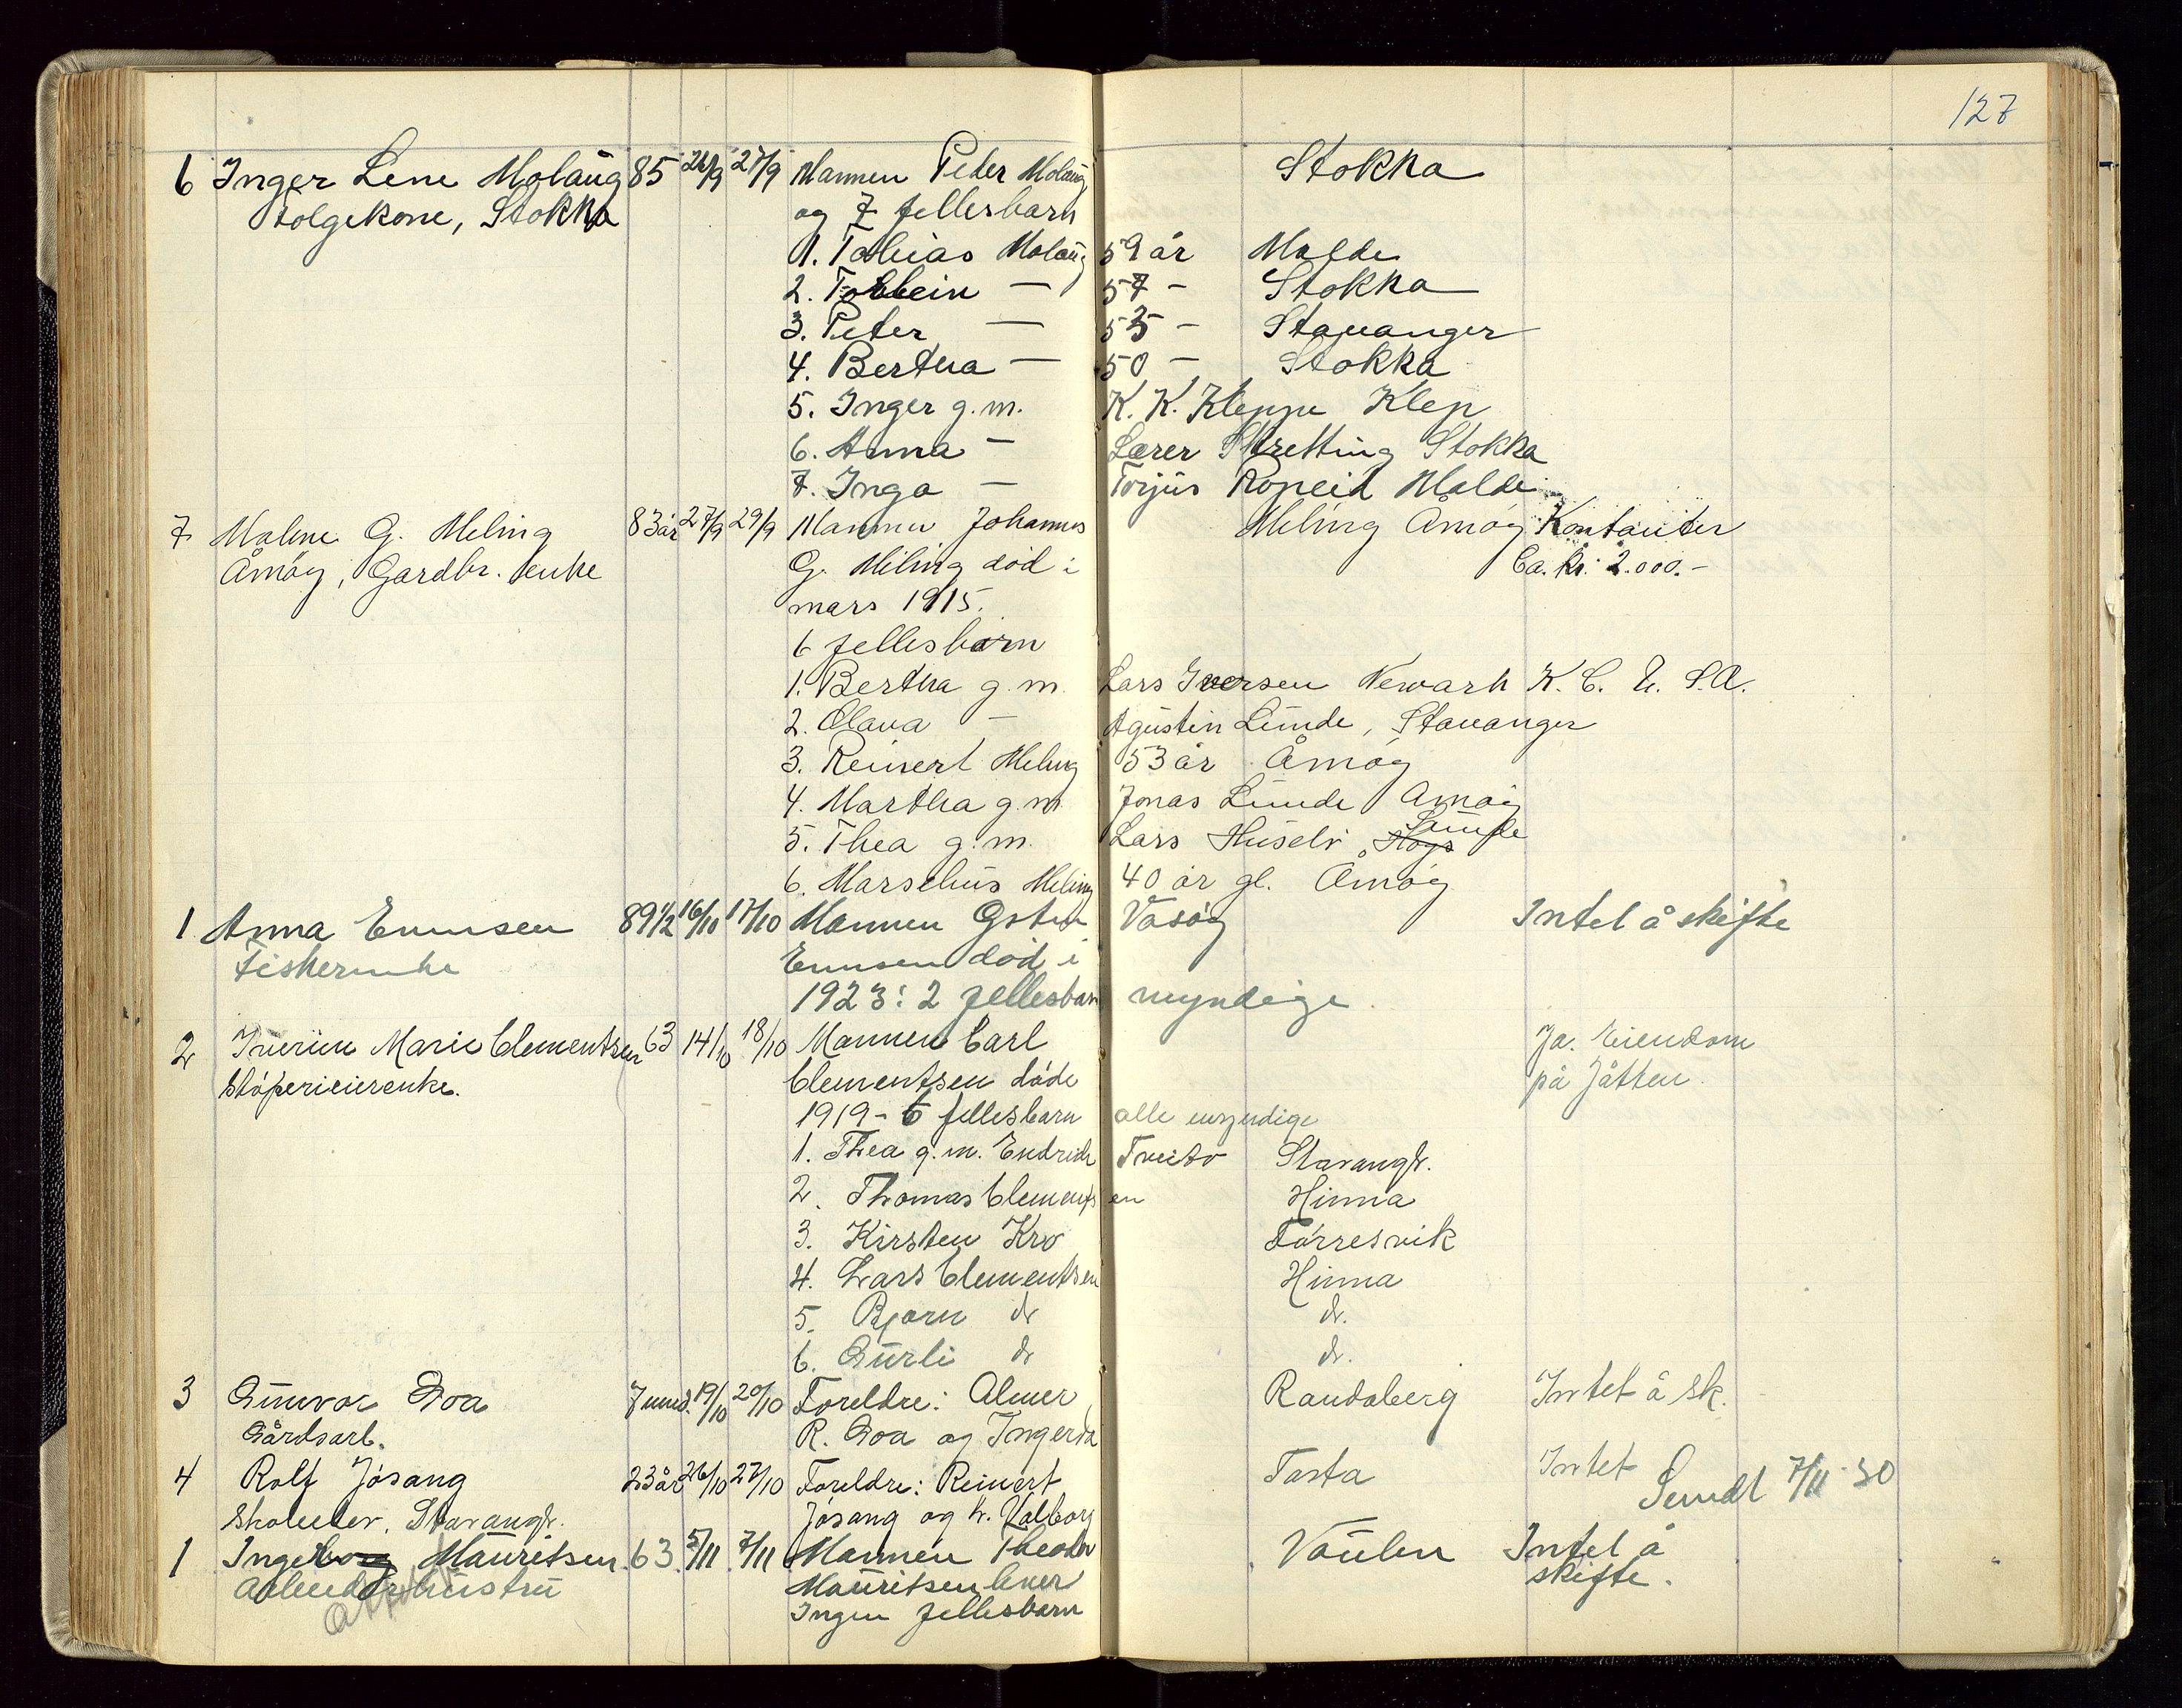 127
6 Inger Lene Molaug 85 26/9 27/9 Mannen Peder Molaug Stokka
Folgekone, Stokka og 7 fellesbarn
1. Tobias Molaug 59 år Malde
2. Torbein — 57 - Stokka
3. Peter — 53 - Stavanger
4. Bertha — 50 - Stokka
5. Inger g.m. K. K. Kleppe Klep
6. Anna — Lærer Stretting Stokka
7. Inga — Torjus Malde
7 Malene G. Meling 83 år 27/9 29/9 Mannen Johannes Meling Åmøy Kontanter
Åmøy, Gardbr. enke G. Meling død i Ca. kr. 2.000.-
mars 1915.
6 fellesbarn
1. Bertha g.m. Lars Iversen Newark K. C. U. S.A.
2. Olava — Agustin Lunde, Stavanger
3. Reinert Meling 53 år Åmøy
4. Martha g.m. Jonas Lunde Åmøy
5. Thea g.m. Lars Husebø, Sunde
6. Marselius Meling 40 år gl. Åmøy
1 Anna Ennusen 89 1/2 16/10 17/10 Mannen Vasøy Intet å skifte
Fiskerenke Ennusen død i
1923: 2 fellesbarn myndige
2 Marie Clementsen 63 14/10 18/10 Mannen Carl Ja. Eiendom
Støperieierenke. Clementsen døde på Jåtten
1919 - 6 fellesbarn alle myndige
1. Thea g.m. Endride Tveito Stavangr.
2. Thomas Clementsen Hinna
3. Kirsten Kro Førresvik
4. Lars Clementsen Hinna
5. Bjørn do do.
6. Gurli do do.
3 Gunvor Goa 7 mnd. 19/10 20/10 Foreldre: Almer Randaberg Intet å sk.
Gårdsarb. R. Goa og Ingerda
4 Rolf Jøsang 23 år 26/10 27/10 Foreldre: Reinert Tasta Intet
Sendt 7/11 30
Skoleelev, Stavangr. Jøsang og h. Valborg
1 Ingeborg Mauritsen 63 5/11 7/11 Mannen Theodor Vaulen Intet å
Arbeiderhustru Mauritsen lever skifte.
Ingen fellesbarn